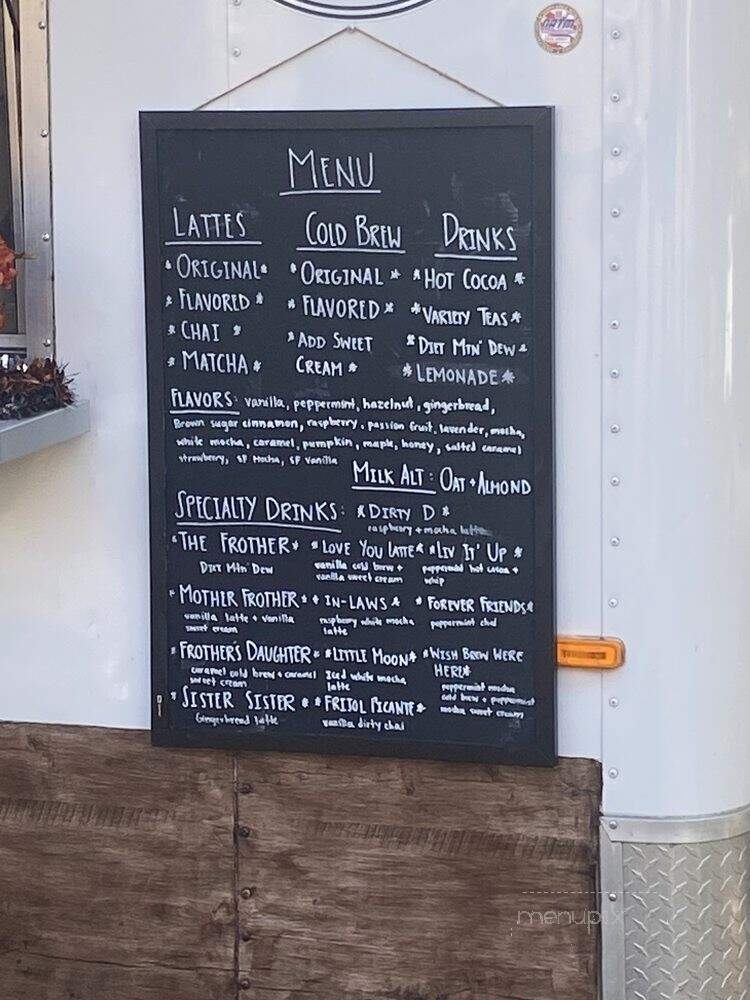 MENU
LATTES
* ORIGINAL *
* FLAVORED *
* CHAI *
* MATCHA *
COLD BREW
* ORIGINAL *
* FLAVORED *
* ADD SWEET
CREAM *
DRINKS
* HOT COCOA *
* VARIETY TEAS *
* DIET MTN' DEW *
* LEMONADE *
FLAVORS: vanilla, peppermint, hazelnut, gingerbread,
Brown sugar cinnamon, raspberry, passion fruit, lavender, mocha,
white mocha, caramel, pumpkin, maple, honey, salted caramel
strawberry, SF Mocha, SF Vanilla
MILK ALT: OAT + ALMOND
SPECIALTY DRINKS:
* DIRTY D *
raspberry + mocha latte
* THE FROTHER *
DIET Mtn' DEW
* LOVE YOU LATTE *
vanilla cold brew +
vanilla sweet cream
* LIV IT' UP *
peppermint hot cocoa +
whip
* MOTHER FROTHER *
vanilla latte + vanilla
sweet cream
* IN-LAWS *
raspberry white mocha
latte
* FOREVER FRIENDS *
peppermint chai
* FROTHER'S DAUGHTER *
caramel cold brew + caramel
sweet cream
* LITTLE MOON *
Iced white mocha
latte
* WISH BREW WERE
HERE *
peppermint mocha
cold brew + peppermint
mocha sweet cream
* SISTER SISTER *
Gingerbread latte
* FRIJOL PICANTE *
vanilla dirty chai
menupix